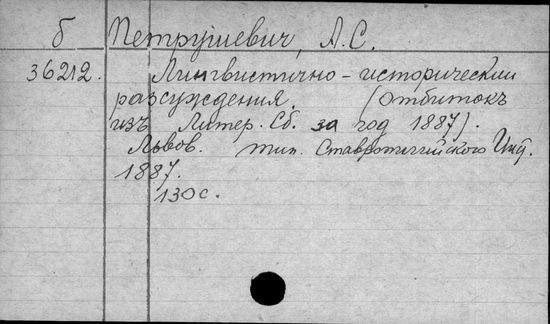 б Петрушевич, А.С.
36212. Лингвистично-исторический
разсуждения. (отбитокъ
изъ Литер. Сб. за год 1887).
Львов. тип. Ставропигийского Инст.
1887.
130 с.